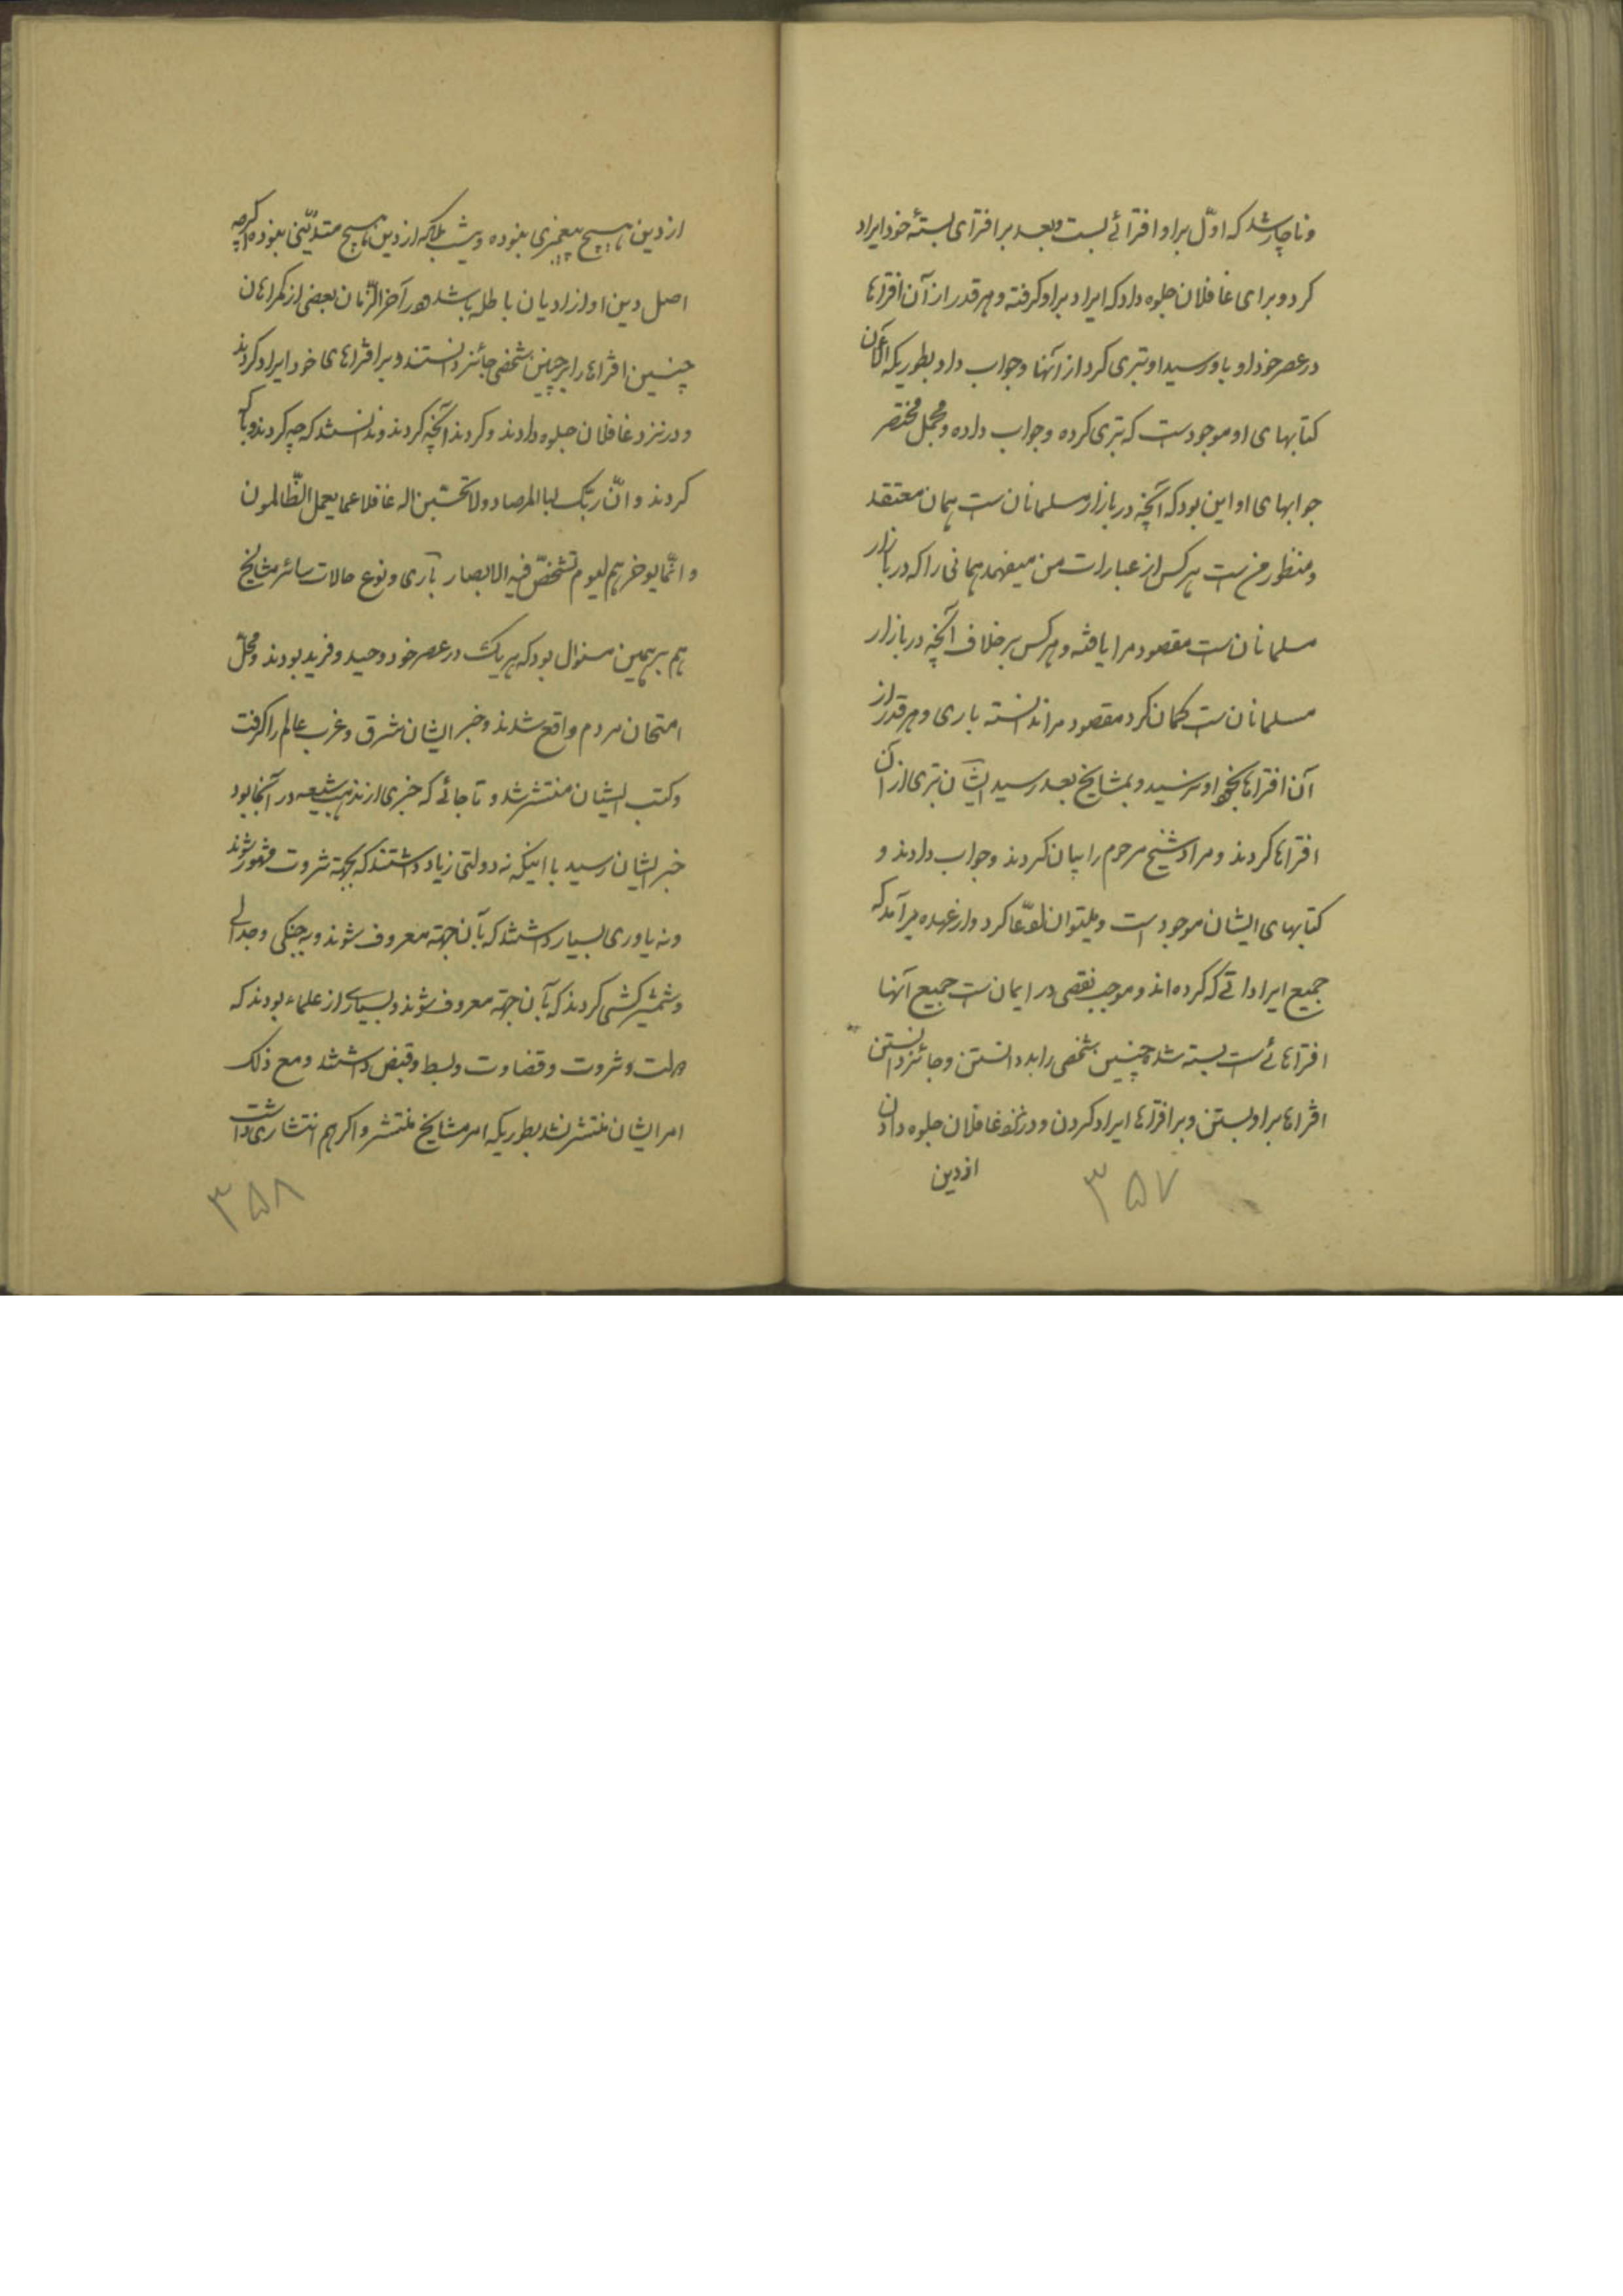 و ناچار شد که اوّل بر او افترائے بست و بعد بر افترای بستهٔ خود ایراد
کرد و برای غافلان جلوه داد که ایراد بر او گرفته و هر قدر از آن افتراها
در عصر خود او باو رسید او تبری کرد از آنها و جواب داد بطوریکه الآن
کتابهای او موجودست که تبری کرده و جواب داده و مجمل مختصر
جوابهای او این بود که آنچه در بازار مسلمانان ست همان معتقد
و منظور من ست هر کس از عبارات من میفهمد همانی را که در بازار
مسلمانان ست مقصود مرا یافته و هر کس بر خلاف آنچه در بازار
مسلمانان ست گمان کرد مقصود مرا ندانسته باری و هر قدر از
آن افتراها بخود او نرسید و بمشایخ بعد رسید ایشان تبری از آن
افتراها کردند و مراد شیخ مرحوم را بیان کردند و جواب دادند و
کتابهای ایشان موجود است و میتوان ادّعا کرد و از عهده بر آمد که
جمیع ایراداتے که کرده اند و موجب نقصی در ایمان ست جمیع آنها
افتراهائے ست بسته شده و چنین شخصی را بد دانستن و جائز دانستن
افتراها بر او بستن و بر افتراها ایراد کردن و در نزد غافلان جلوه دادن
از دین
۳۵۷
از دین هیچ پیغمبری نبوده و نیست بلکه از دین هیچ متدیّنی نبوده اگرچه
اصل دین او از ادیان باطله باشد و در آخر الزّمان بعضی از گمراهان
چنین افتراها را بر چنین شخصی جائز دانستند و بر افتراهای خود ایراد کردند
و در نزد غافلان جلوه دادند و کردند آنچه کردند و ندانستند که چه کردند و با که
کردند و انّ ربّک لبا المرصاد و لا تحسبّن اله غافلا عما یعمل الظّالمون
و انّما یوخرهم لیوم تشخصّ فیه الابصار باری و نوع حالات سائر مشایخ
هم بر همین منوال بود که هر یک در عصر خود وحید و فرید بودند و محلّ
امتحان مردم واقع شدند و خبر ایشان شرق و غرب عالم را گرفت
و کتب ایشان منتشر شد و تا جائے که خبری از مذهب شیعه در آنجا بود
خبر ایشان رسید با اینکه نه دولتی زیاد داشتند که بجهة ثروت مشهور شوند
و نه یاوری بسیار داشتند که بآن جهة معروف شوند و نه جنگی و جدالی
و شمشیر کشی کردند که بآن جهة معروف شوند و بسیاری از علماء بودند که
دولت و ثروت و قضاوت و بسط و قبض داشتند و مع ذلک
امر ایشان منتشر نشد بطوریکه امر مشایخ منتشر و اگر هم انتشاری داشت
۳۵۸